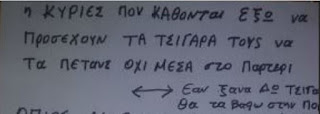 η ΚΥΡΙΕΣ ΠΟΥ ΚΑΘΟΝΤΑΙ ΕΞΩ να
ΠΡΟΣΕΧΟΥΝ ΤΑ ΤΣΙΓΑΡΑ ΤΟΥΣ να
Τα ΠΕΤΑΝΕ ΟΧΙ ΜΕΣΑ στο Παρτερι
↔ Εαν ξανα Δω Τσιγα
Θα τα στην Πο